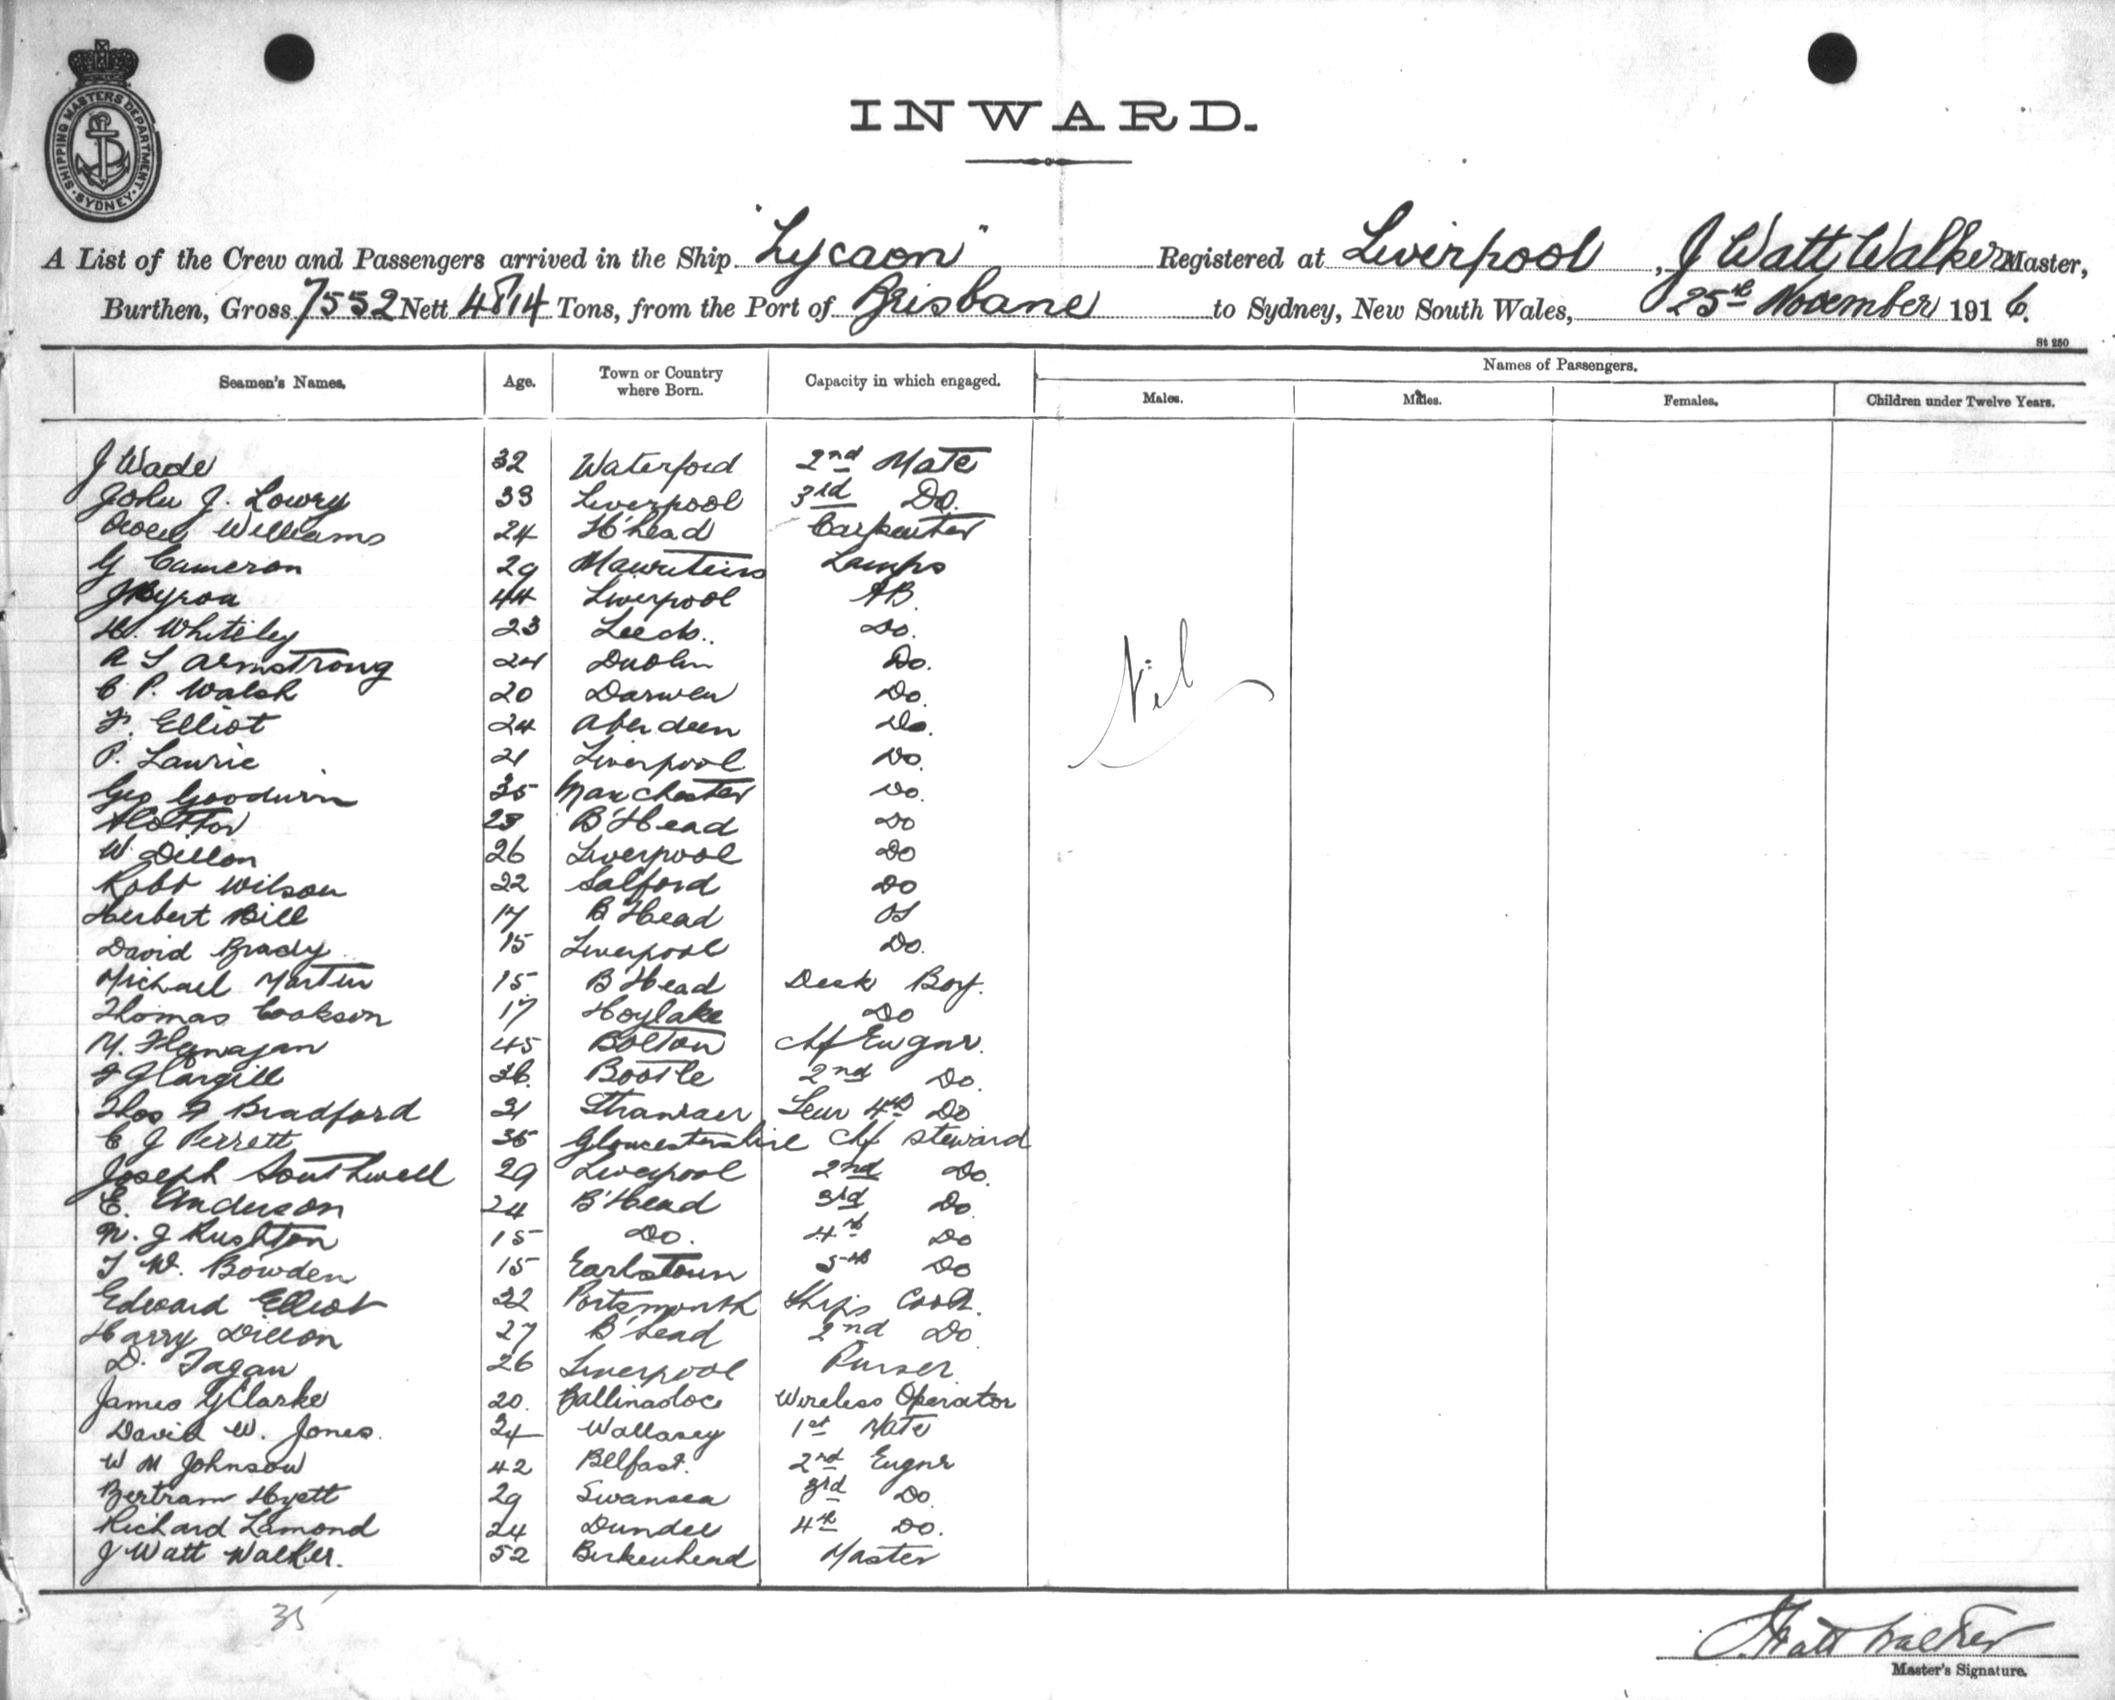 SHIPPING MASTERS DEPARTMENT. SYDNEY
INWARD.
A List of the Crew and Passengers arrived in the Ship "Lycaon" Registered at Liverpool, J Watt Walker Master,
Burthen, Gross 7552 Nett 4814 Tons, from the Port of Brisbane to Sydney, New South Wales, 25th November 1916.
St 250
Seamen's Names. Age. Town or Country where Born. Capacity in which engaged. Names of Passengers.
Males. Males. Females. Children under Twelve Years.
J Wade 32 Waterford 2nd Mate
John J. Lowry 33 Liverpool 3rd Do.
Owen Williams 24 H'head Carpenter
G Cameron 29 Mauritius Lamps
J Byron 44 Liverpool AB.
H. Whiteley 23 Leeds. Do.
A S Armstrong 24 Dublin Do.
C P. Walsh 20 Darwen Do.
F. Elliot 24 Aberdeen Do.
P. Laurie 21 Liverpool Do.
Geo Goodwin 35 Manchester Do.
23 B'Head Do
W. Dillon 26 Liverpool Do
Robt Wilson 22 Salford Do
Herbert Bill 17 B'Head OS
David Brady 15 Liverpool Do.
Michael Martin 15. B'Head Deck Boy.
Thomas Cookson 17 Hoylake Do
M. Flanagan 45 Bolton Chf Engnr.
J Cargill 36. Bootle 2nd Do.
Thos F Bradford 21 Stranraer 4th Do
C J Perrett 35 Gloucestershire Chf Steward
Joseph Southwell 29 Liverpool 2nd Do.
E. Anderson 24 B'Head 3rd Do.
N. J Rushton 15 Do. 4th Do
T W. Bowden 15 Earlstown 5th Do
Edward Elliot 22 Portsmouth Ships Cook.
Harry Dillon 27 B'head 2nd Do
D. Fagan 26 Liverpool Purser
James Y Clarke 20. Ballinasloe Wireless Operator
David W. Jones. 34 Wallasey 1st Mate
W M Johnson 42 Belfast. 2nd Engnr
Bertram Hyett 29 Swansea 3rd Do.
Richard Lamond 24 Dundee 4th Do.
J Watt Walker. 52 Birkenhead Master
Nil
35
J. Watt Walker
Master's Signature.